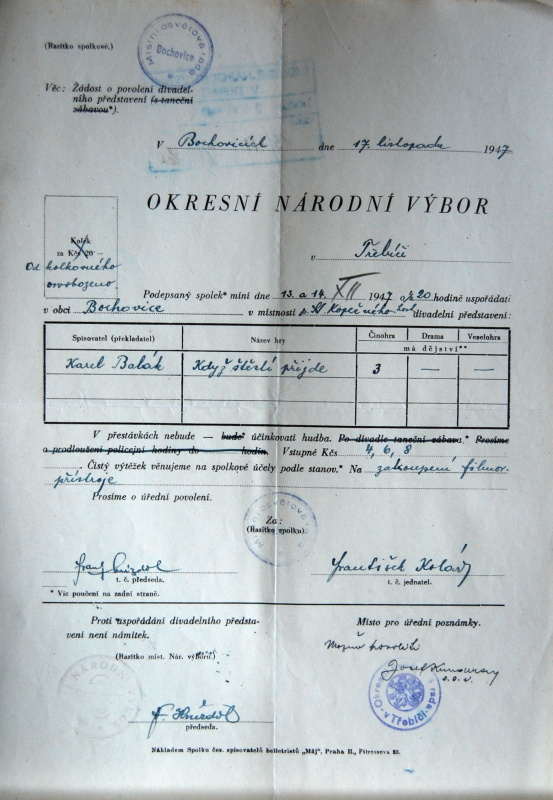 (Razítko spolkové.)
Místní osvětová rada
Bochovice
Věc: Žádost o povolení divadel-
ního představení (s taneční
zábavou*).
V Bochovicích dne 17. listopadu 1947
OKRESNÍ NÁRODNÍ VÝBOR
Kolek
za Kčs 20·-
v Třebíči
Od kolkovného
osvobozeno.
Podepsaný spolek* míní dne 13. a 14. XII 1947 o 20 hodině uspořádati
v obci Bochovice v místnosti p. Kopečného divadelní představení:
Spisovatel (překladatel) Název hry Činohra Drama Veselohra
má dějství**
Karel Balák Když štěstí přijde 3 — —
V přestávkách nebude — bude* účinkovati hudba. Po divadle taneční zábava.* Prosíme
o prodloužení policejní hodiny do hodin. Vstupné Kčs 4, 6, 8
Čistý výtěžek věnujeme na spolkové účely podle stanov.* Na zakoupení filmov.
přístroje
Prosíme o úřední povolení.
Za:
(Razítko spolku).
Místní osvětová rada
František Kolář
t. č. předseda. t. č. jednatel.
* Viz poučení na zadní straně.
Proti uspořádání divadelního předsta-
vení není námitek.
Místo pro úřední poznámky.
(Razítko míst. Nár. výboru.)
Josef
Okres rada
v Třebíči
předseda.
Nákladem Spolku čes. spisovatelů beletristů „Máj", Praha II., Pštrossova 35.